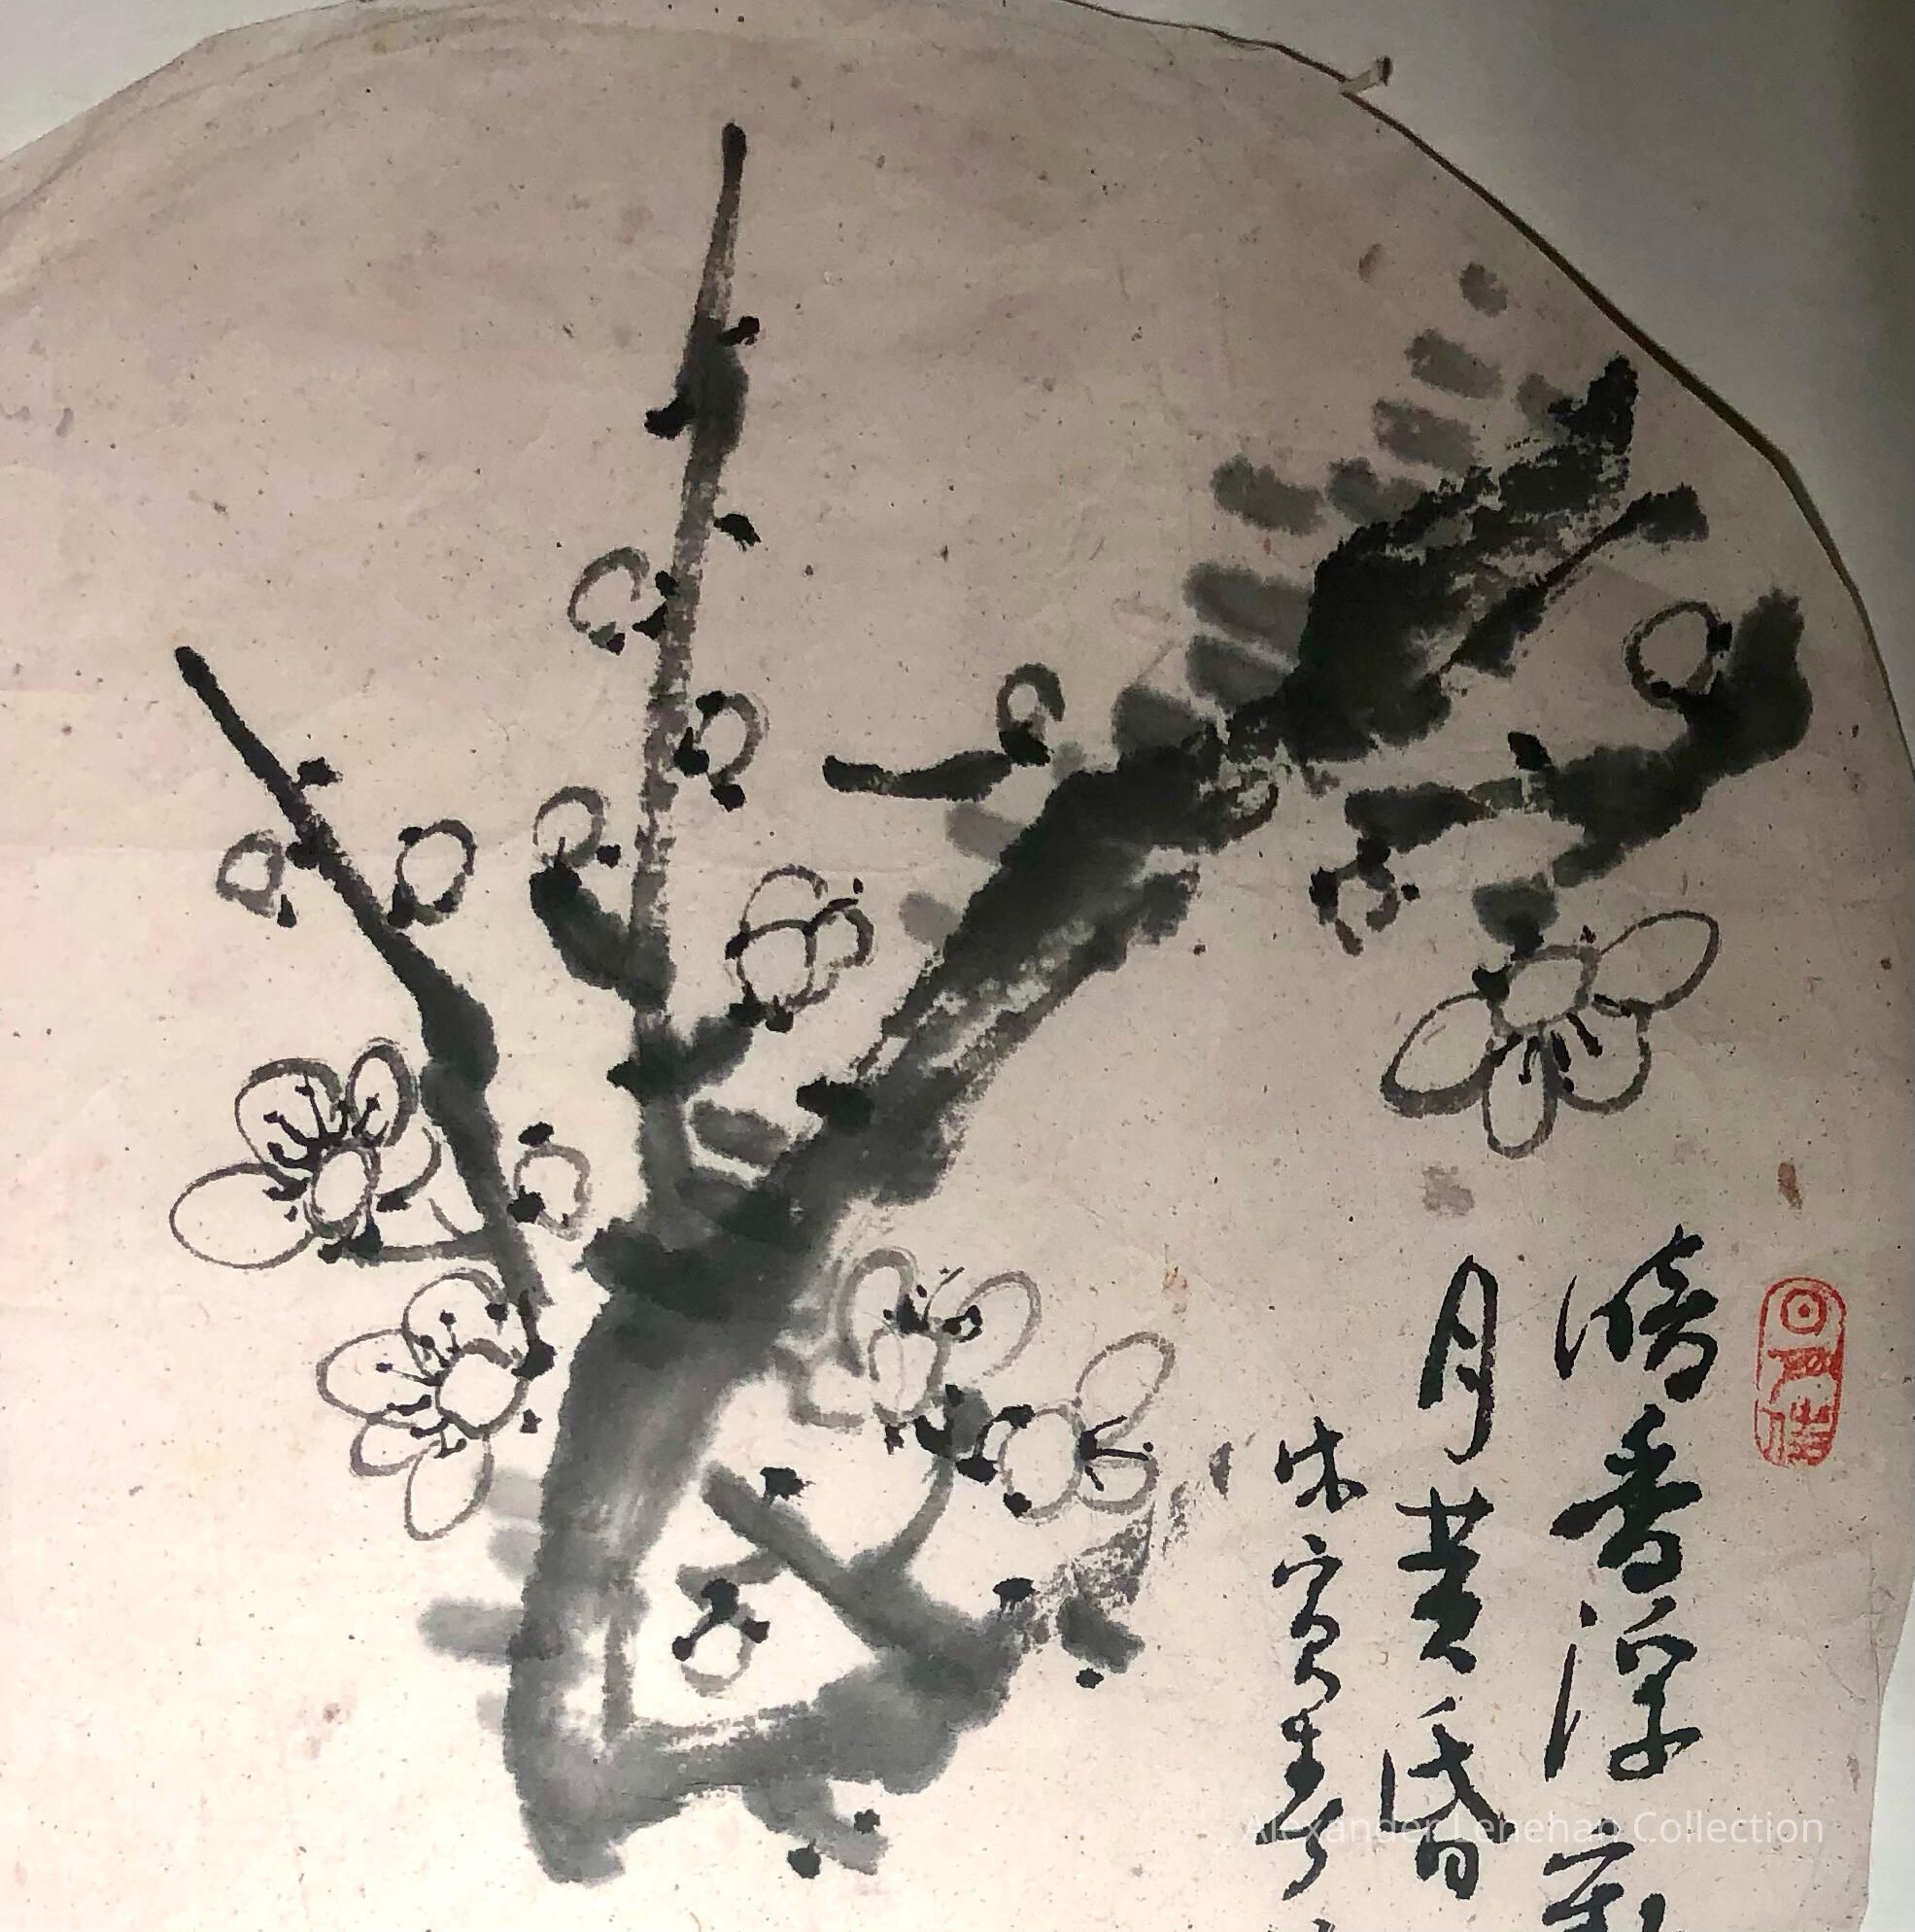 暗香浮動
月黄昏
戊寅
Alexander Lenehan Collection